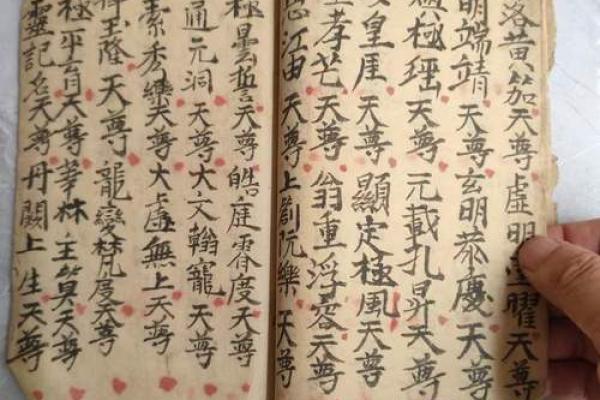 洛黄笳天尊虚明堂曜天尊
明端靖天尊玄明恭慶天尊
極瑶天尊元載孔昇天尊
皇崖天尊顯定極風天尊
孝芒天尊翁重浮容天尊
思江由天尊上阮樂天尊
極曇誓天尊皓庭霄度天尊
通元洞天尊大文翰寵天尊
素秀樂天尊大虚無上天尊
玉隆天尊龍變梵度天尊
極平育天尊華林主筭天尊
靈記名天尊丹闕上生天尊